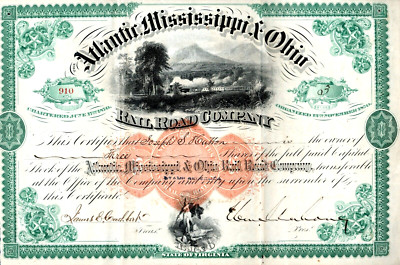 The Atlantic, Mississippi & Ohio
910
RAIL ROAD COMPANY
CHARTERED JUNE 17, 1870.
This Certifies that Joseph S. is the owner
of Three Shares of the full paid Capital
Stock of the Atlantic, Mississippi & Ohio Rail Road Company, transferable
at the Office of the Company and only upon the surrender of
this Certificate.
Treas.
Pres.
STATE OF VIRGINIA